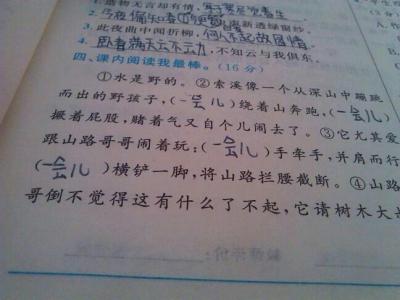 1.造物无言却有情,
2.今夜偏知春气暖,虫声新透绿窗纱。
3.此夜曲中闻折柳,何人不起故园情。
4.卧看满天云不动,不知云与我俱东。
四、课内阅读我最棒。(16分)
①水是野的。②索溪像一个从深山中蹦跳
而出的野孩子,(一会儿)绕着山奔跑,(一会儿)
撅着屁股,赌着气又自个儿闹去了。③它尤其爱
跟山路哥哥闹着玩:(一会儿)手牵手,并肩而行
(一会儿)横铲一脚,将山路拦腰截断。④山路
哥倒不觉得这有什么了不起,它请树木大